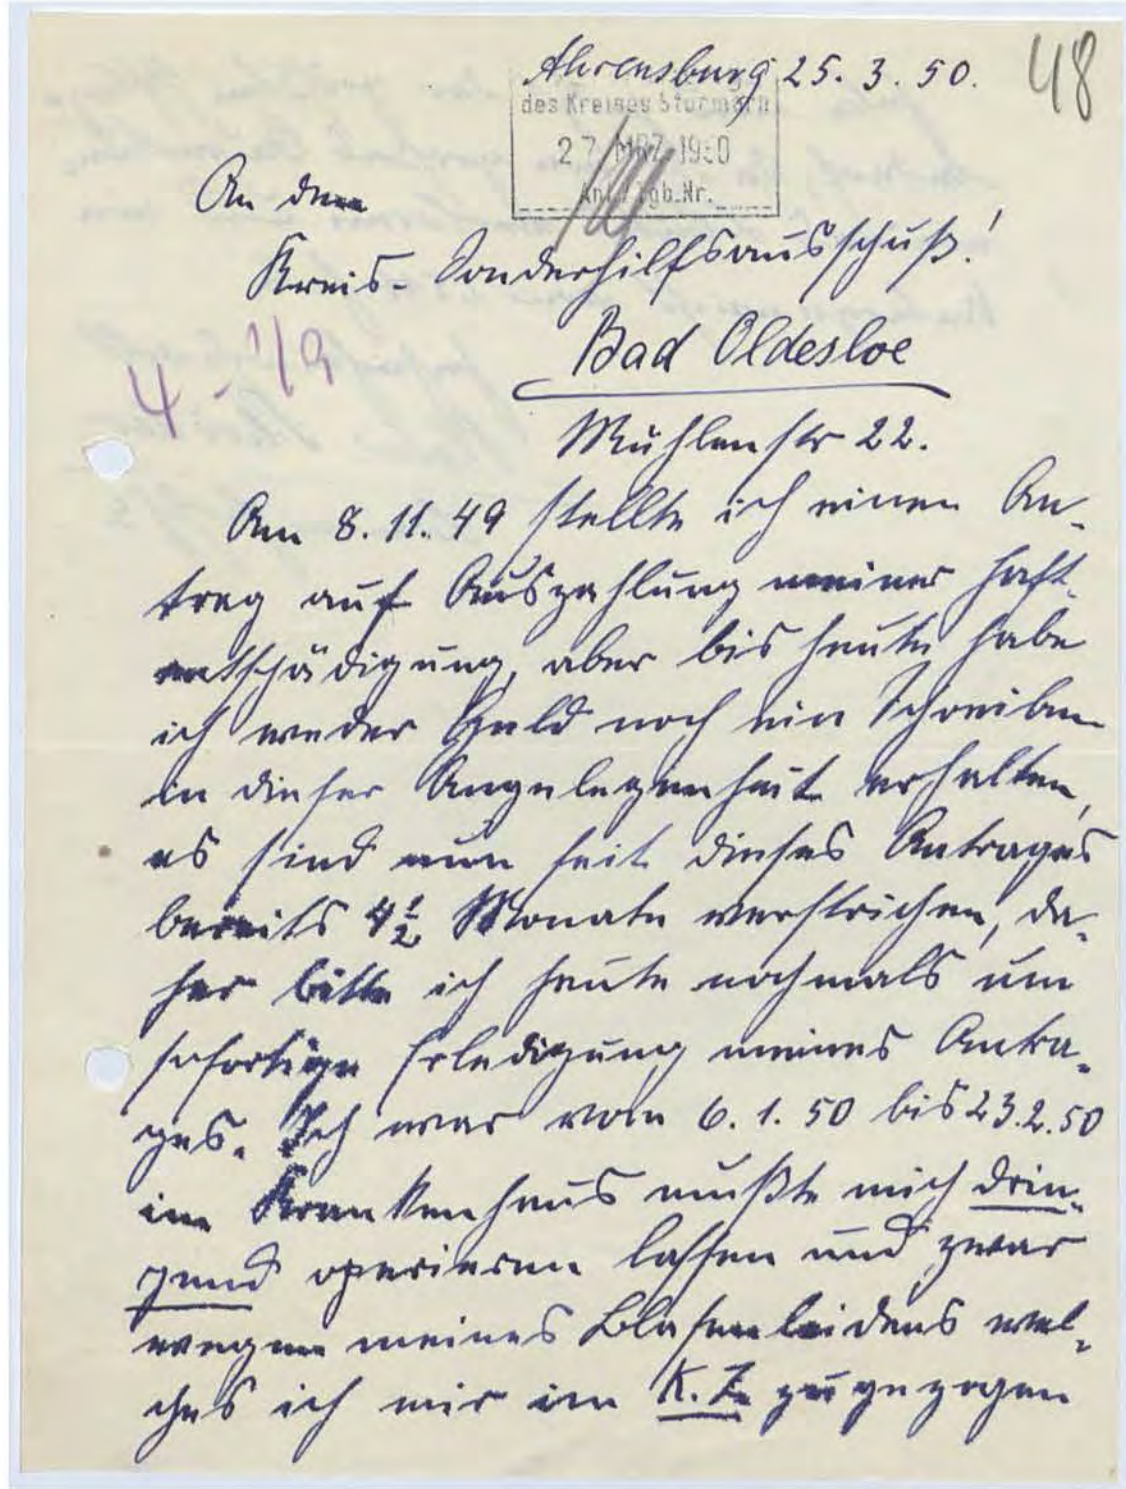 Ahrensburg 25.3.50.
48
des Kreises Stormarn
27. MRZ. 1950
Ant. Tgb.Nr.
An den
Kreis-Sonderhilfsausschuß!
4-49
Bad Oldesloe
Mühlenstr 22.
Am 8.11.49 stellte ich einen An-
trag auf Auszahlung meiner Haft-
entschädigung, aber bis heute habe
ich weder Geld noch ein Schreiben
in dieser Angelegenheit erhalten,
es sind nun seit dieses Antrages
bereits 4½ Monate verstrichen, da-
her bitte ich heute nochmals um
sofortige Erledigung meines Antra-
ges. Ich war vom 6.1.50 bis 23.2.50
im Krankenhaus mußte mich drin-
gend operieren lassen und zwar
wegen meines Blasenleidens wel-
ches ich mir im K.Z. zugezogen